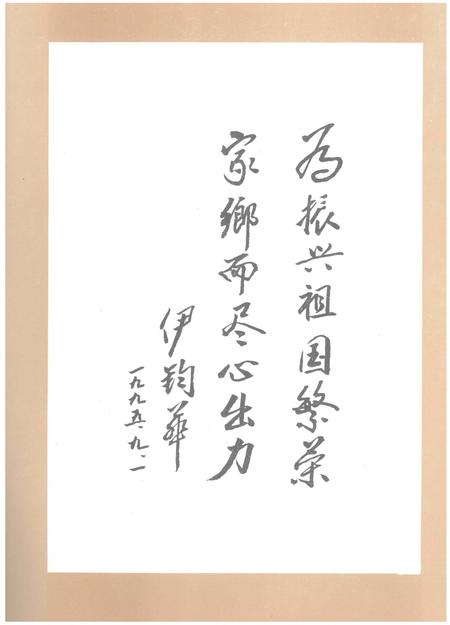 为振兴祖国繁荣
家鄉而尽心出力
伊钧華
一九九五.九.一